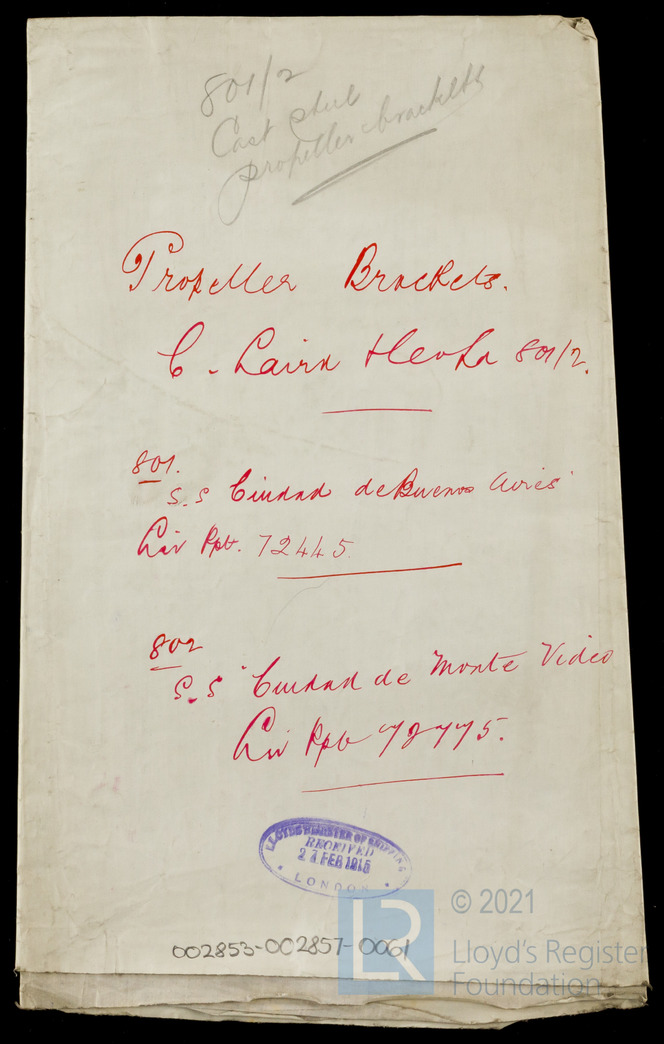 801/2
Cast steel
propeller brackets
Propeller Brackets.
C. Laird & Co Ld 801/2.
801.
S.S Ciudad de Buenos Aires
Liv Rpt. 72445
802
S.S "Ciudad de Monte Video
Liv Rpt 72775.
LLOYD'S REGISTER OF SHIPPING
RECEIVED
FEB 1915
LONDON
002853-002857-0061
LR
© 2021
Lloyd's Register
Foundation